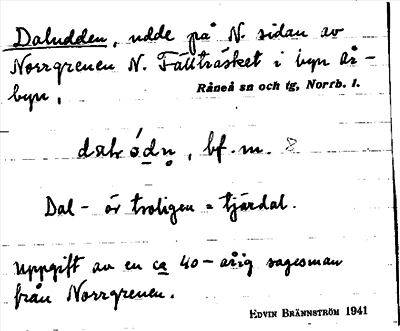 Daludden, udde på N. sidan av
Norrgrenen N. Fällträsket i byn År-
byn,
Råneå sn och tg, Norrb. l.
bf. m.
Dal- är troligen = tjärdal.
Uppgift av en ca 40-årig sagesman
från Norrgrenen.
EDVIN BRÄNNSTRÖM 1941